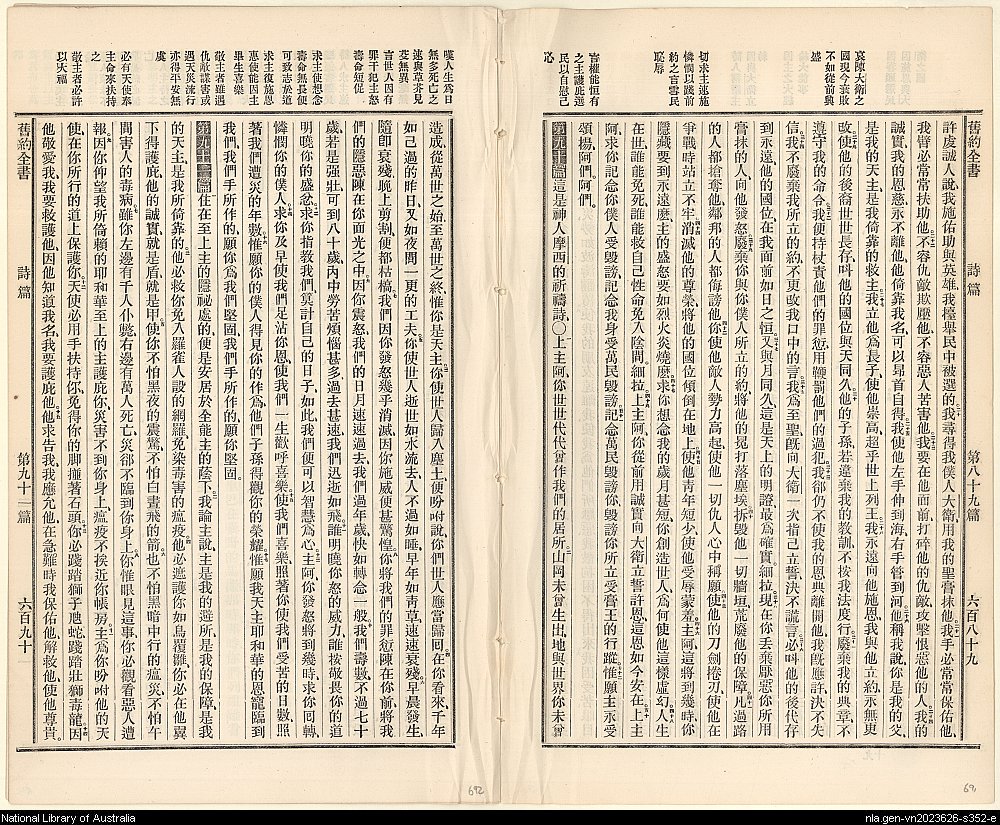 舊約全書 詩篇 第八十九篇 六百八十九
哀陳大衛之
國現今衰敗
不如從前興
盛
切求主速施
憐憫以踐前
約之言雪民
恥辱
言權能恒有
之主護庇選
民以自慰己
心
許虔誠人說我施佑助與英雄我擡舉民中被選的我尋得我僕人大衛用我的聖膏抹他我手必常常保佑他
我臂必常常扶助他不容仇敵欺壓他不容惡人苦害他我要在他面前打碎他的仇敵攻擊恨惡他的人我的
誠實我的恩慈永不離他他倚靠我名可以昂首自得我使他左手伸到海右手管到河他稱我說你是我的父
是我的天主是我倚靠的救主我立他為長子使他崇高超乎世上列王我永遠向他施恩我與他立約永無更
改使他的後裔世世長存叫他的國位與天同久他的子孫若違棄我的教訓不按我法度行廢棄我的典章不
遵守我的命令我便持杖責他們的罪愆用鞭罰他們的過犯我卻仍不使我的恩典離開他我既應許決不失
信我不廢棄我所立的約不更改我口中的言我為至聖既向大衛一次指己立誓決不謊言必叫他的後代存
到永遠他的國位在我面前如日之恒又與月同久這是天上的明證最為確實細拉現在你去棄厭惡你所用
膏抹的人向他發怒廢棄你與你僕人所立的約將他的冕打落塵埃拆毀他一切牆垣荒廢他的保障凡過路
的人都搶奪他鄰邦的人都侮謗他你使他敵人勢力高起使他一切仇人心中稱願使他的刀劍捲刃使他在
爭戰時站立不牢消滅他的尊榮將他的國位傾倒在地上使他青年短少使他受辱蒙羞主阿這將到幾時你
隱藏要到永遠麼主的盛怒要如烈火炎燒麼求你想念我的歲月甚短你創造世人為何使他這樣虛幻人生
在世誰能免死誰能救自己性命免入陰間細拉上主阿你從前用誠實向大衛立誓許恩這恩如今安在上主
阿求你記念你僕人受毀謗記念我身受萬民毀謗記念萬民毀謗你毀謗你所立受膏王的行蹤惟願主永受
頌揚阿們阿們
第九十篇 這是神人摩西的祈禱詩〇上主阿你世世代代曾作我們的居所山岡未曾生出地與世界你未曾
嘆人生為日
無多死亡之
速與草芥見
芟無異
言世人因有
罪干犯主怒
壽命短促
求主使想念
壽命無長便
可致志於道
求主復施恩
惠使能因主
畢生喜樂
敬主者雖遇
仇敵謀害或
遇天災流行
亦得平安無
虞
必有天使奉
主命來扶持
之
敬主者必許
以大福
造成從萬世之始至萬世之終惟你是天主你使世人歸入塵土便吩咐說你們世人應當歸回在你看來千年
如已過的昨日又如夜間一更的工夫你使世人逝世如水流去人不過如睡早年如靑草速速衰殘早晨發生
隨即衰殘晚上剪割便都枯槁我們因你發怒幾乎消滅因你施威便甚驚惶你將我們的罪愆陳在你前將我
們的隱惡陳在你面光之中因你震怒我們的日月速速過去我們過年歲快如轉念一般我們壽數不過七十
歲若是強壯可到八十歲內中勞苦煩惱甚多過去甚速我們迅逝如飛誰明曉你怒的威力誰按敬畏你的道
明曉你的盛忿求你指敎我們算計自己的日子如此我們便可以智慧為心主阿你發怒將到幾時求你囘轉
憐憫你的僕人求你及早使我們足沾你恩使我們一生歡呼喜樂使我們喜樂照著你使我們受苦的日數照
著我們遭災的年數惟願你的僕人得見你的作為他們子孫得觀你的榮耀惟願我天主耶和華的恩寵臨到
我們我們手所作的願你為我們堅固我們手所作的願你堅固
第九十一篇 住在至上主的隱祕處的便是安居於全能主的蔭下我論主說主是我的避所是我的保障是我
的天主是我所倚靠的他必救你免入羅雀人設的網羅免染毒害的瘟疫他必遮護你如鳥覆雛你必在他翼
下得護庇他的誠實就是盾就是甲使你不怕黑夜的震驚不怕白晝飛的箭也不怕黑暗中行的瘟災不怕午
間害人的毒病雖你左邊有千人仆斃右邊有萬人死亡災卻不臨到你身上你惟眼見這事你必觀看惡人遭
報因你仰望我所倚賴的耶和華至上的主護庇你災害不到你身上瘟疫不挨近你帳房主為你吩咐他的天
使在你所行的道上保護你天使必用手扶持你免得你的脚撞著石頭你必踐踏獅子虺蛇踐踏壯獅毒龍因
他敬愛我我要救護他因他知道我名我要護庇他他求告我我應允他在急難時我保佑他解救他使他尊貴
舊約全書 詩篇 第九十一篇 六百九十
692
69
National Library of Australia
nla.gen-vn2023626-s352-e